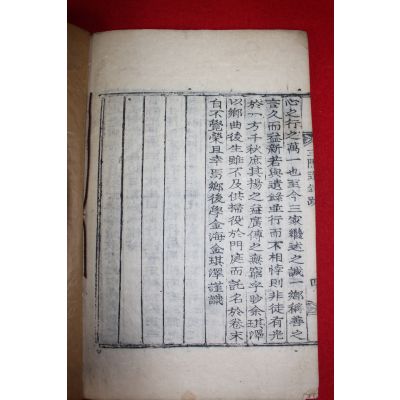 心之行之萬一也至今三家繼述之誠一鄉稱善之
言久而益新若與遺錄並行而不相悖則非徒有光
於一方千秋庶其揚之益廣傳之無窮乎眇余琪澤
以鄉曲後生雖不及供掃役於門庭而託名於卷末
自不覺榮且幸焉鄉後學金海金琪澤謹識